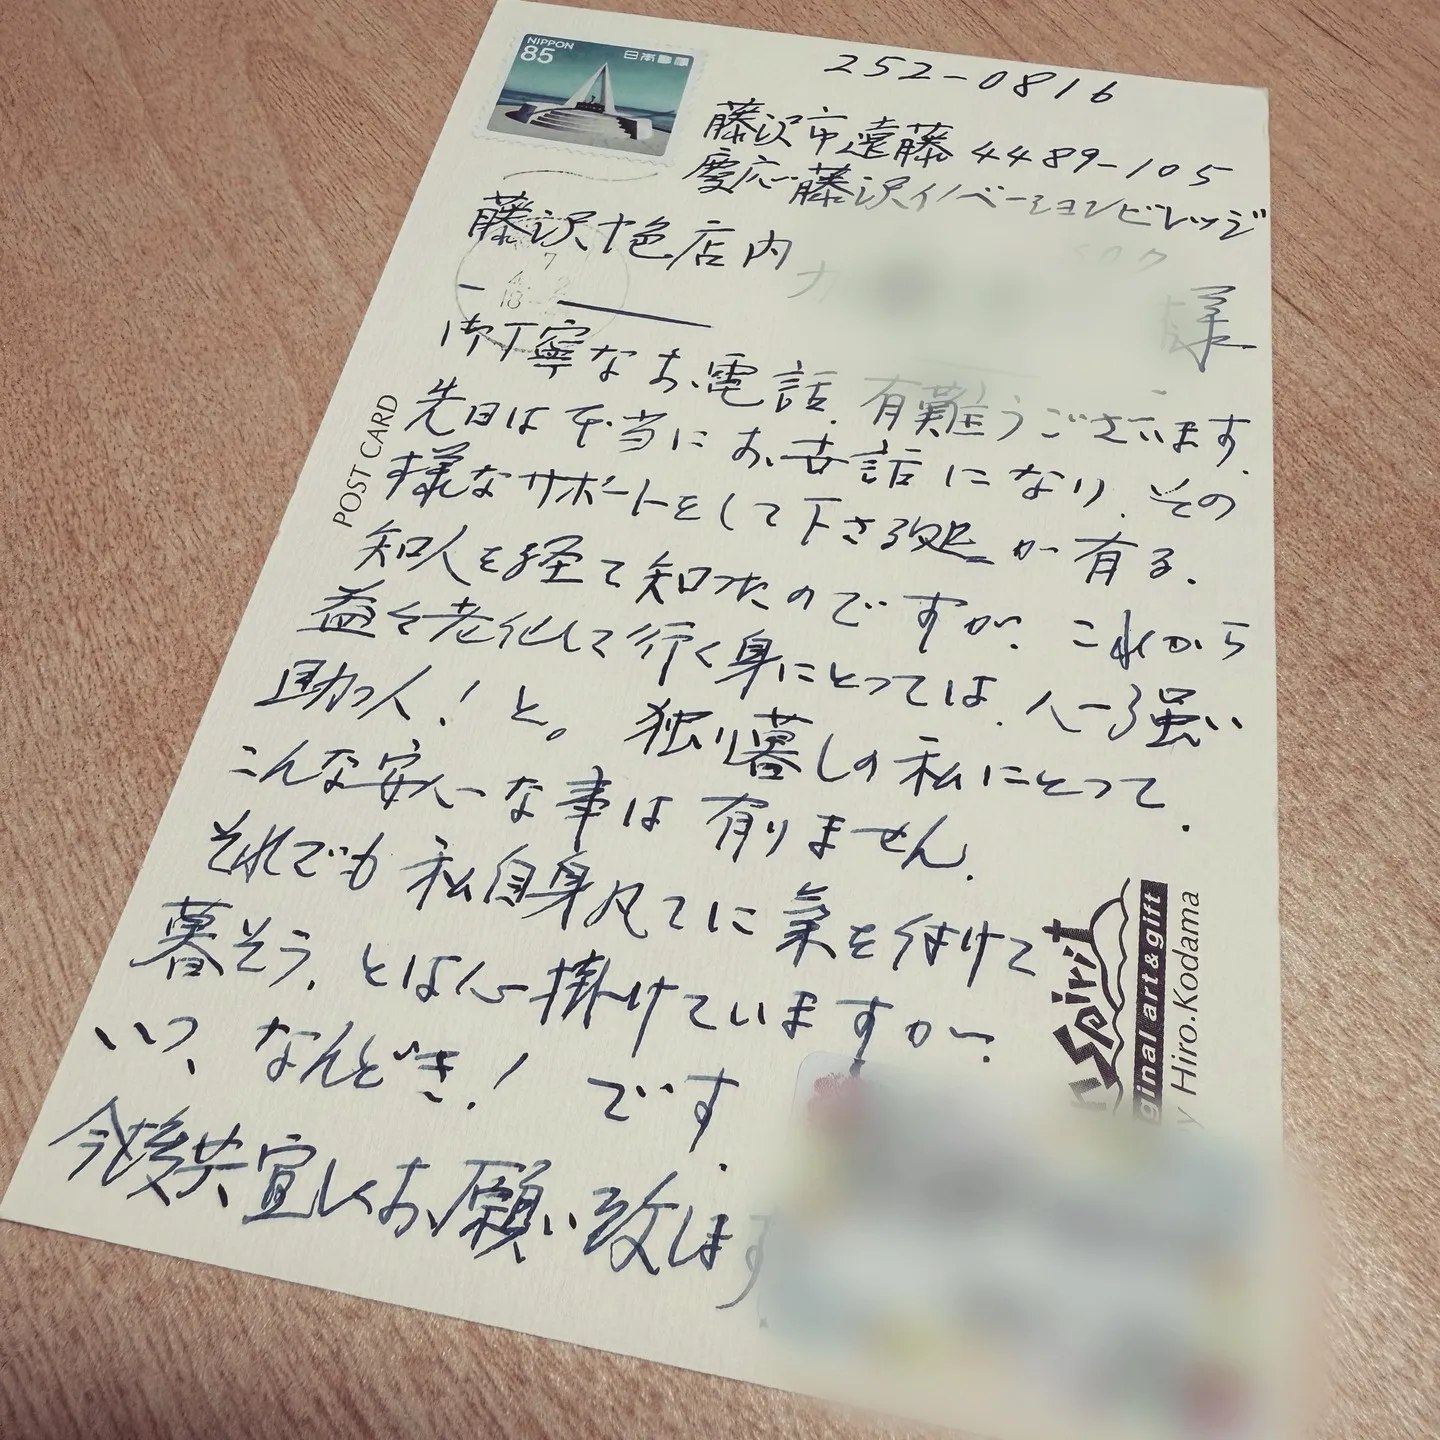 NIPPON
85
日本郵便
252-0816
藤沢市遠藤4489-105
慶応藤沢イノベーションビレッジ
藤沢十色店内
様
御丁寧なお電話、有難うございます。
先日は本当にお世話になり、その
様なサポートをして下さる処が有る。
知人を経て知ったのですが、これから
益々老化して行く身にとっては、心強い
助っ人!と。独り暮しの私にとって、
こんな安心な事は有りません。
それでも私自身凡てに氣を付けて
暮そう、とは心掛けていますが、
いつ、なんどき!です。
今後共宜しくお願い致します
POST CARD
Spirit
ginal art & gift
y Hiro.Kodama